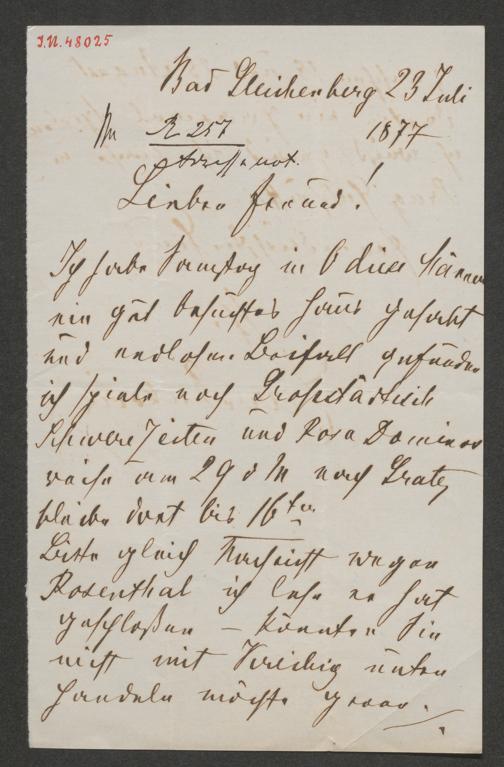 I.N. 48025
Bad Gleichenberg 23 Juli
No R 257 1877
Adresse not.
Lieber Freund!
Ich habe Samstag in O diese Männer
ein gut besuchtes Haus gehabt
und endlosen Beifall gefunden
ich spiele noch Großstädtisch
Schwere Zeiten und Rosa Dominos
reise am 29 d M nach Gratz
bleibe dort bis 16ten
Bitte gleich Nachricht wegen
Rosenthal ich lese er hat
geschloßen – Könnten Sie
nicht mit unter
handeln möchte gerne.